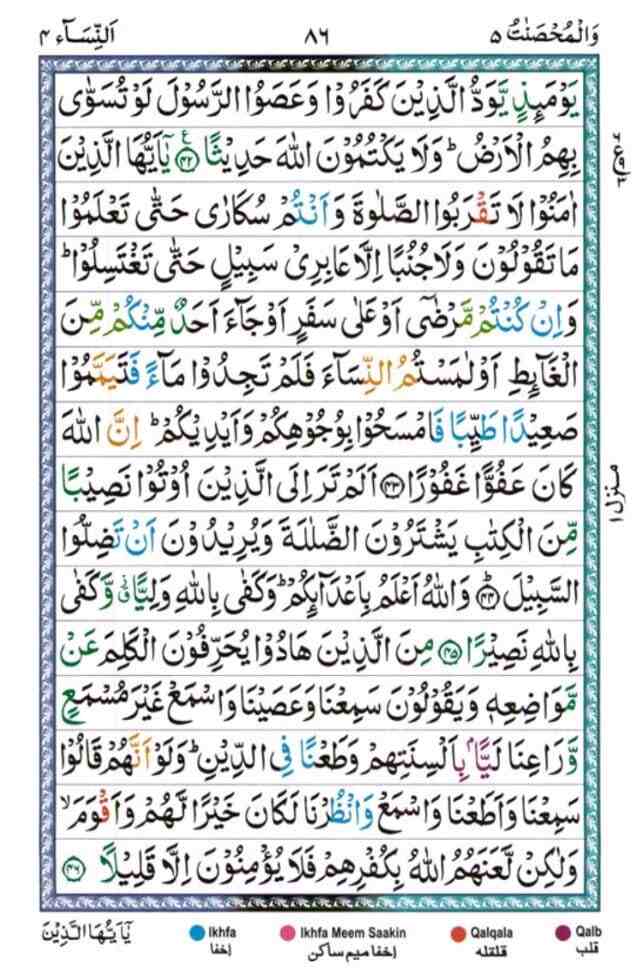 وَالْمُحْصَنٰتُ ٥ ٨٦ اَلنِّسَآء ٤
يَوْمَىِٕذٍ يَّوَدُّ الَّذِيْنَ كَفَرُوْا وَعَصَوُا الرَّسُوْلَ لَوْ تُسَوّٰى
بِهِمُ الْاَرْضُ ؕ وَلَا يَكْتُمُوْنَ اللّٰهَ حَدِيْثًا ﴿٤٢﴾ يٰۤاَيُّهَا الَّذِيْنَ
اٰمَنُوْا لَا تَقْرَبُوا الصَّلٰوةَ وَاَنْتُمْ سُكَارٰى حَتّٰى تَعْلَمُوْا
مَا تَقُوْلُوْنَ وَلَا جُنُبًا اِلَّا عَابِرِيْ سَبِيْلٍ حَتّٰى تَغْتَسِلُوْا ؕ
وَاِنْ كُنْتُمْ مَّرْضٰٓى اَوْ عَلٰى سَفَرٍ اَوْ جَآءَ اَحَدٌ مِّنْكُمْ مِّنَ
الْغَآىِٕطِ اَوْ لٰمَسْتُمُ النِّسَآءَ فَلَمْ تَجِدُوْا مَآءً فَتَيَمَّمُوْا
صَعِيْدًا طَيِّبًا فَامْسَحُوْا بِوُجُوْهِكُمْ وَاَيْدِيْكُمْ ؕ اِنَّ اللّٰهَ
كَانَ عَفُوًّا غَفُوْرًا ﴿٤٣﴾ اَلَمْ تَرَ اِلَى الَّذِيْنَ اُوْتُوْا نَصِيْبًا
مِّنَ الْكِتٰبِ يَشْتَرُوْنَ الضَّلٰلَةَ وَيُرِيْدُوْنَ اَنْ تَضِلُّوا
السَّبِيْلَ ﴿٤٤﴾ وَاللّٰهُ اَعْلَمُ بِاَعْدَآىِٕكُمْ ؕ وَكَفٰى بِاللّٰهِ وَلِيًّا وَّكَفٰى
بِاللّٰهِ نَصِيْرًا ﴿٤٥﴾ مِنَ الَّذِيْنَ هَادُوْا يُحَرِّفُوْنَ الْكَلِمَ عَنْ
مَّوَاضِعِهٖ وَيَقُوْلُوْنَ سَمِعْنَا وَعَصَيْنَا وَاسْمَعْ غَيْرَ مُسْمَعٍ
وَّرَاعِنَا لَيًّۢا بِاَلْسِنَتِهِمْ وَطَعْنًا فِي الدِّيْنِ ؕ وَلَوْ اَنَّهُمْ قَالُوْا
سَمِعْنَا وَاَطَعْنَا وَاسْمَعْ وَانْظُرْنَا لَكَانَ خَيْرًا لَّهُمْ وَاَقْوَمَ ۙ
وَلٰكِنْ لَّعَنَهُمُ اللّٰهُ بِكُفْرِهِمْ فَلَا يُؤْمِنُوْنَ اِلَّا قَلِيْلًا ﴿٤٦﴾
منزل ١
يٰۤاَيُّهَا الَّذِيْنَ
Ikhfa
اِخفا
Ikhfa Meem Saakin
اِخفا میم ساکن
Qalqala
قلقله
Qalb
قلب